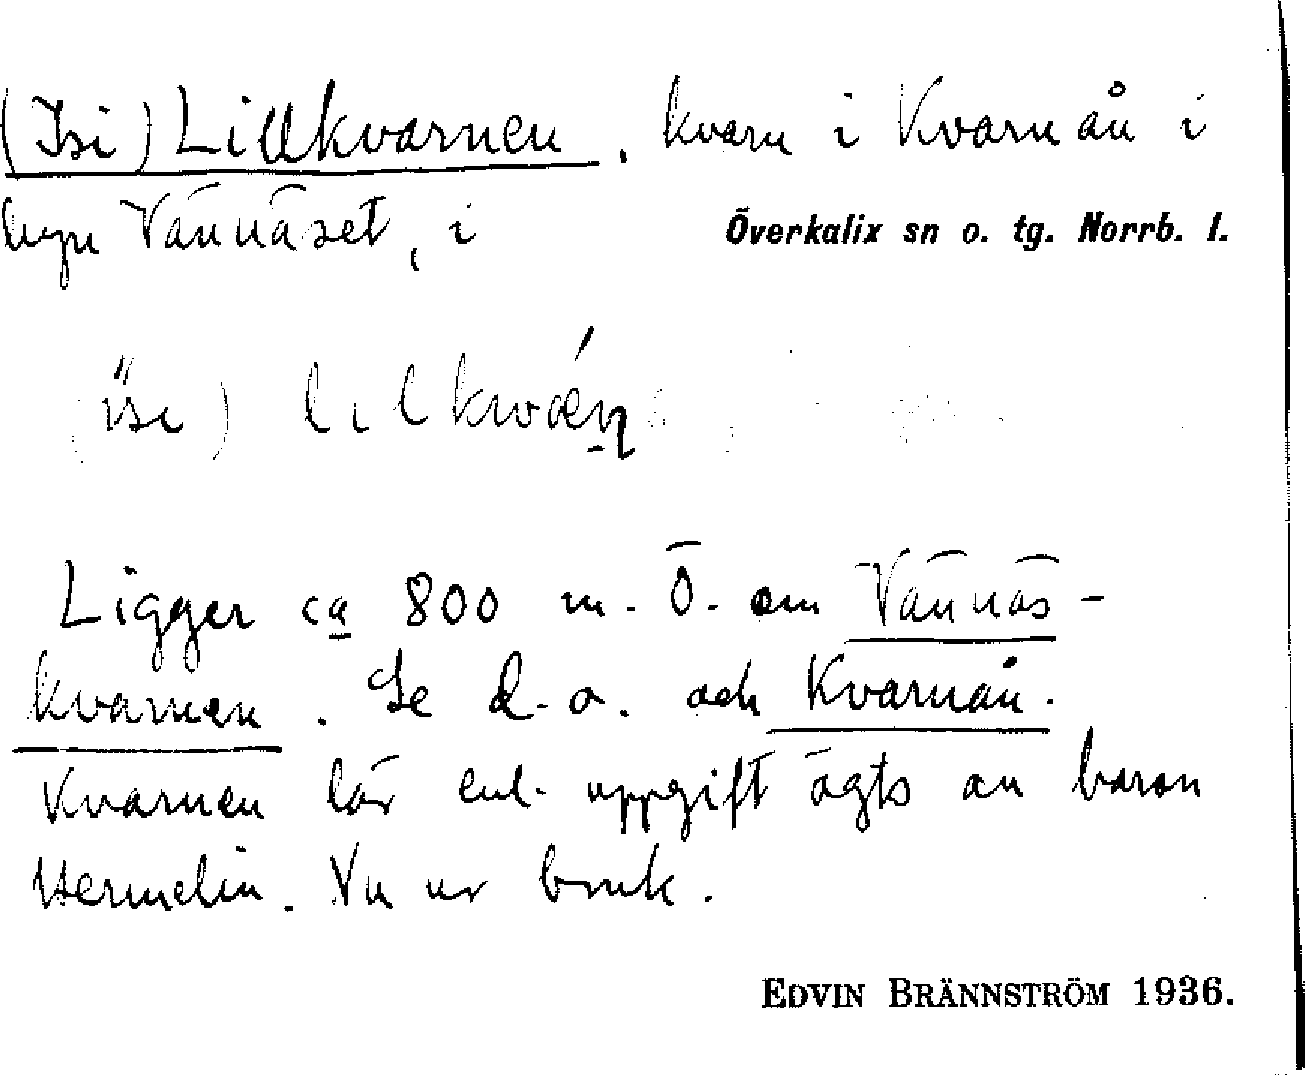 (Isi) Lillkvarnen, kvarn i Kvarnån i
byn Vännäset, i Överkalix sn o. tg. Norrb. l.
Ligger ca 800 m. Ö. om Vännäs-
kvarnen. Se d. o. och Kvarnån.
Kvarnen lär enl. uppgift ägts av baron
Hermelin. Nu ur bruk.
EDVIN BRÄNNSTRÖM 1936.